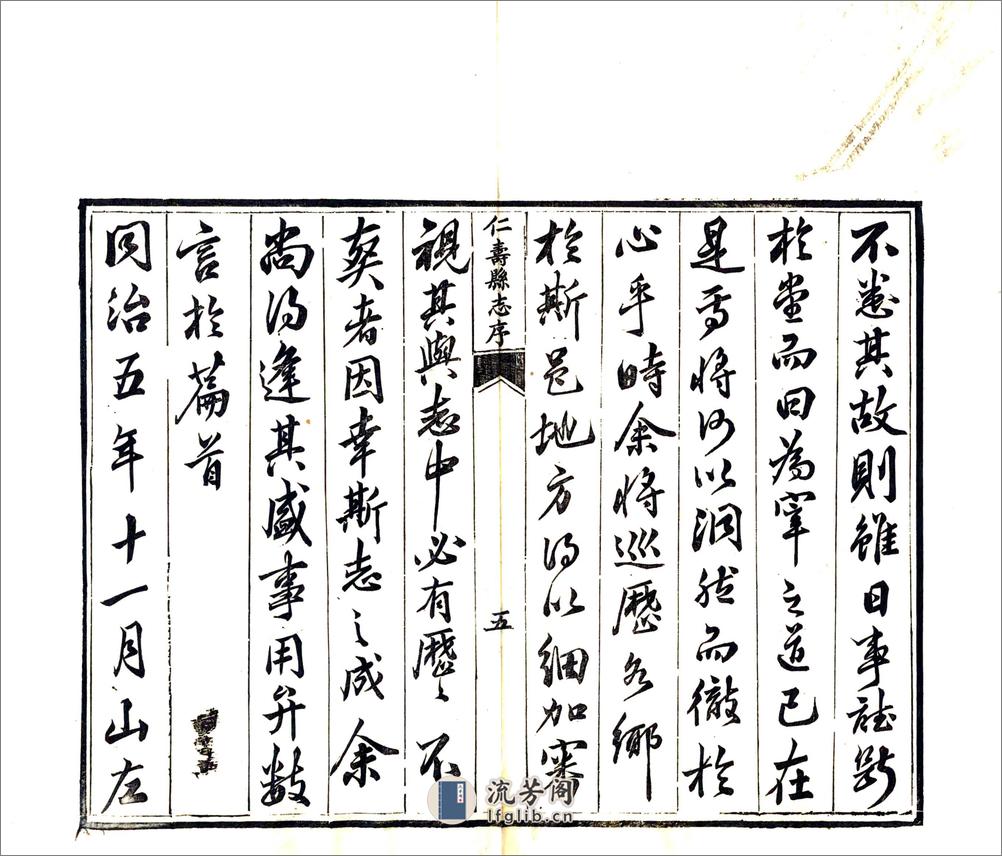 不悉其故則雖日事聽斷
於堂而曰為宰之道已在
是焉將何以洞然而徹於
心乎時余將巡歷各鄉
於斯邑地方得以細加審
仁壽縣志序
五
視其與志中必有歷歷不
爽者因幸斯志之成余
尚得逢其盛事用弁數
言於篇首
同治五年十一月山左
流芳阁
lfglib.cn